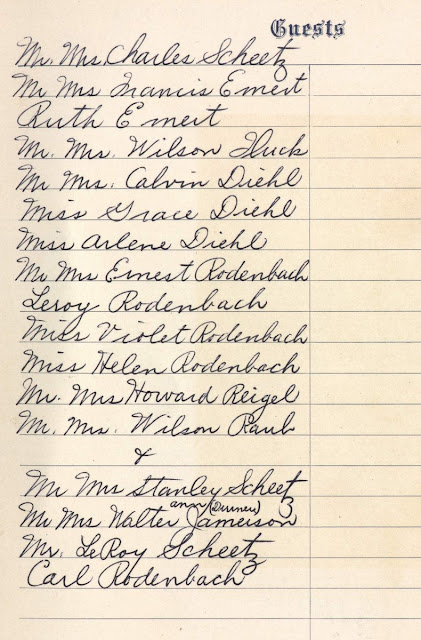 Guests
Mr. Mrs. Charles Scheetz
Mr Mrs Francis Emert
Ruth Emert
Mr. Mrs. Wilson Fluck
Mr Mrs. Calvin Diehl
Miss Grace Diehl
Miss Arlene Diehl
Mr Mrs Ernest Rodenbach
Leroy Rodenbach
Miss Violet Rodenbach
Miss Helen Rodenbach
Mr. Mrs Howard Reigel
Mr. Mrs. Wilson Raub
&
Mr Mrs Stanley Scheetz
ann (Dinners)
Mr Mrs Walter Jamerson
Mr. LeRoy Scheetz
Carl Rodenbach